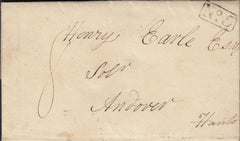 Henry Earle Esqr
Solr
Andover
Hants